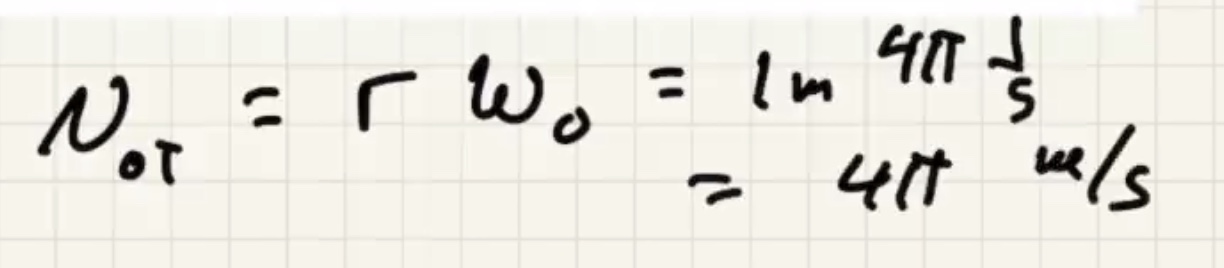 v₀T = r ω₀ = 1m 4π 1/s
= 4π m/s